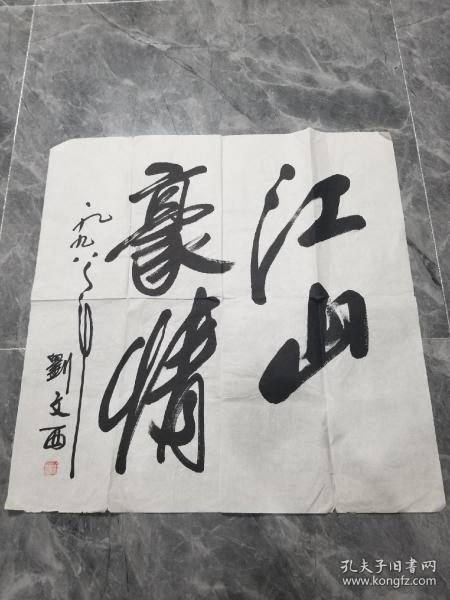 江山
豪情
一九九八年
劉文西
孔夫子旧书网
www.kongfz.com